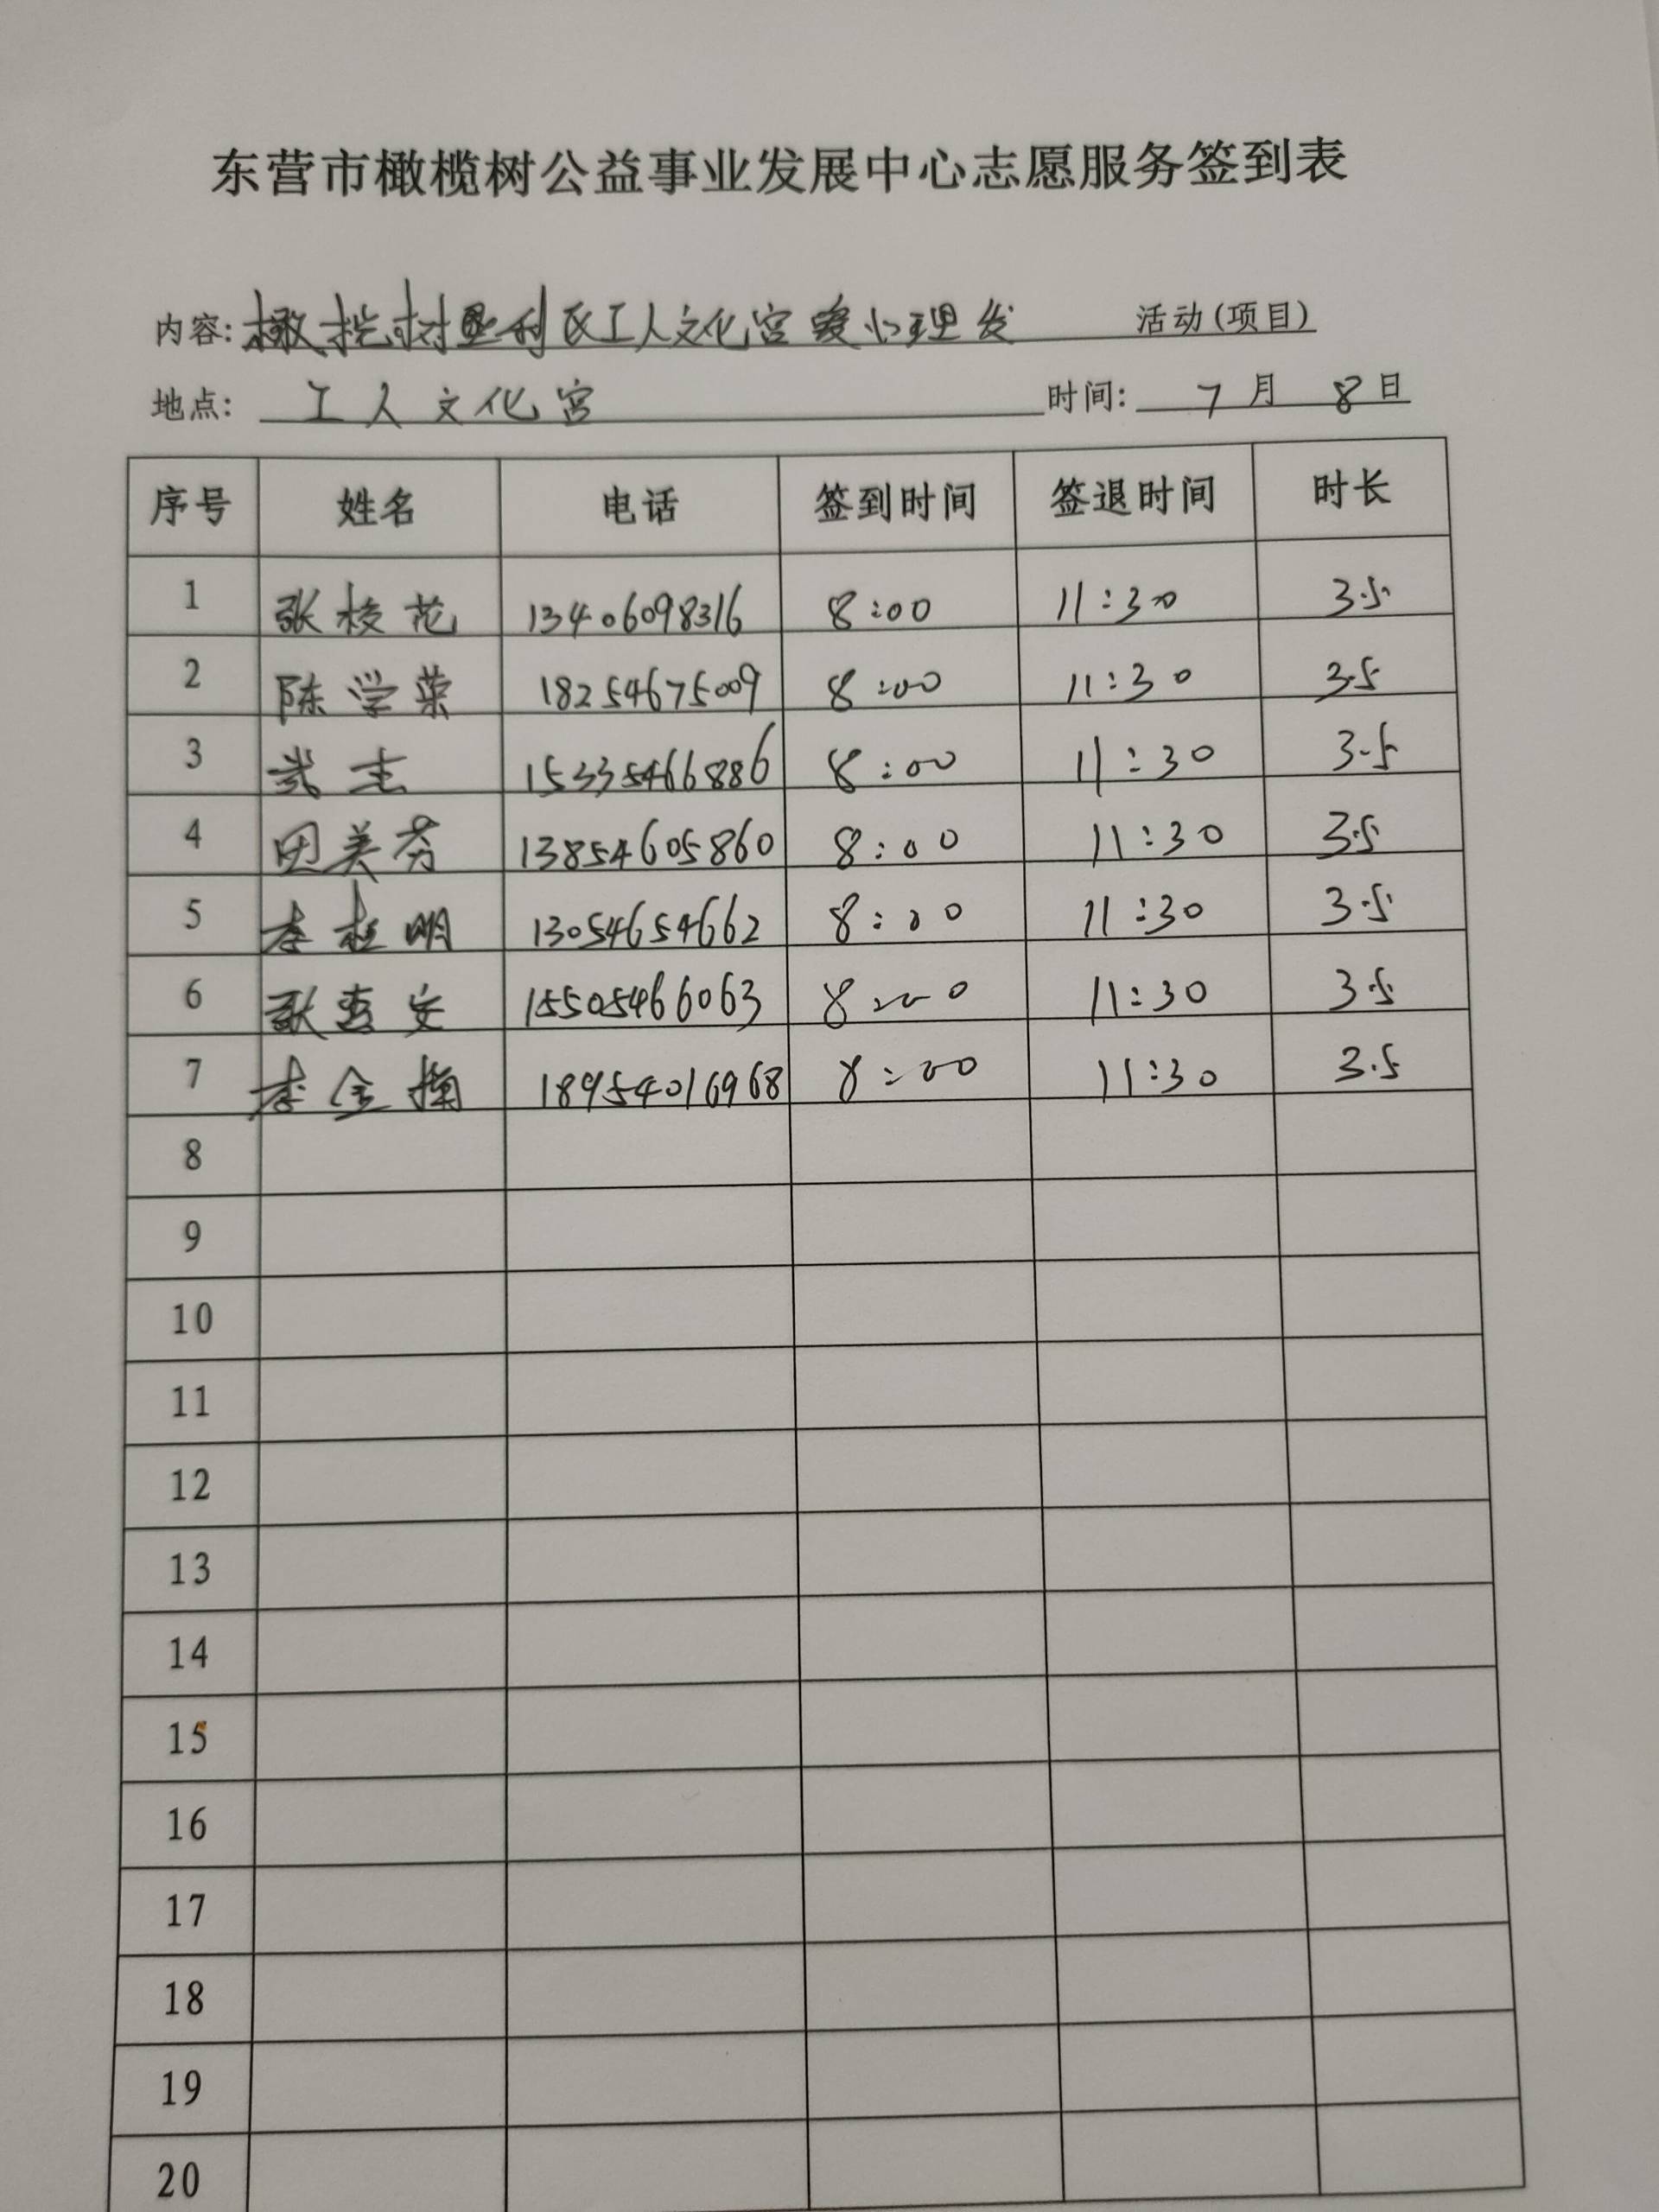 东营市橄榄树公益事业发展中心志愿服务签到表
内容: 橄榄树垦利区工人文化宫爱心理发 活动(项目)
地点: 工人文化宫 时间: 7月8日
序号 姓名 电话 签到时间 签退时间 时长
1 张 13406098316 8:00 11:30 3.5
2 陈学荣 18254675009 8:00 11:30 3.5
3 武杰 15335466886 8:00 11:30 3.5
4 田美芬 13854605860 8:00 11:30 3.5
5 李桂明 13054654662 8:00 11:30 3.5
6 耿 15505466063 8:00 11:30 3.5
7 李金梅 18954016968 8:00 11:30 3.5
8
9
10
11
12
13
14
15
16
17
18
19
20